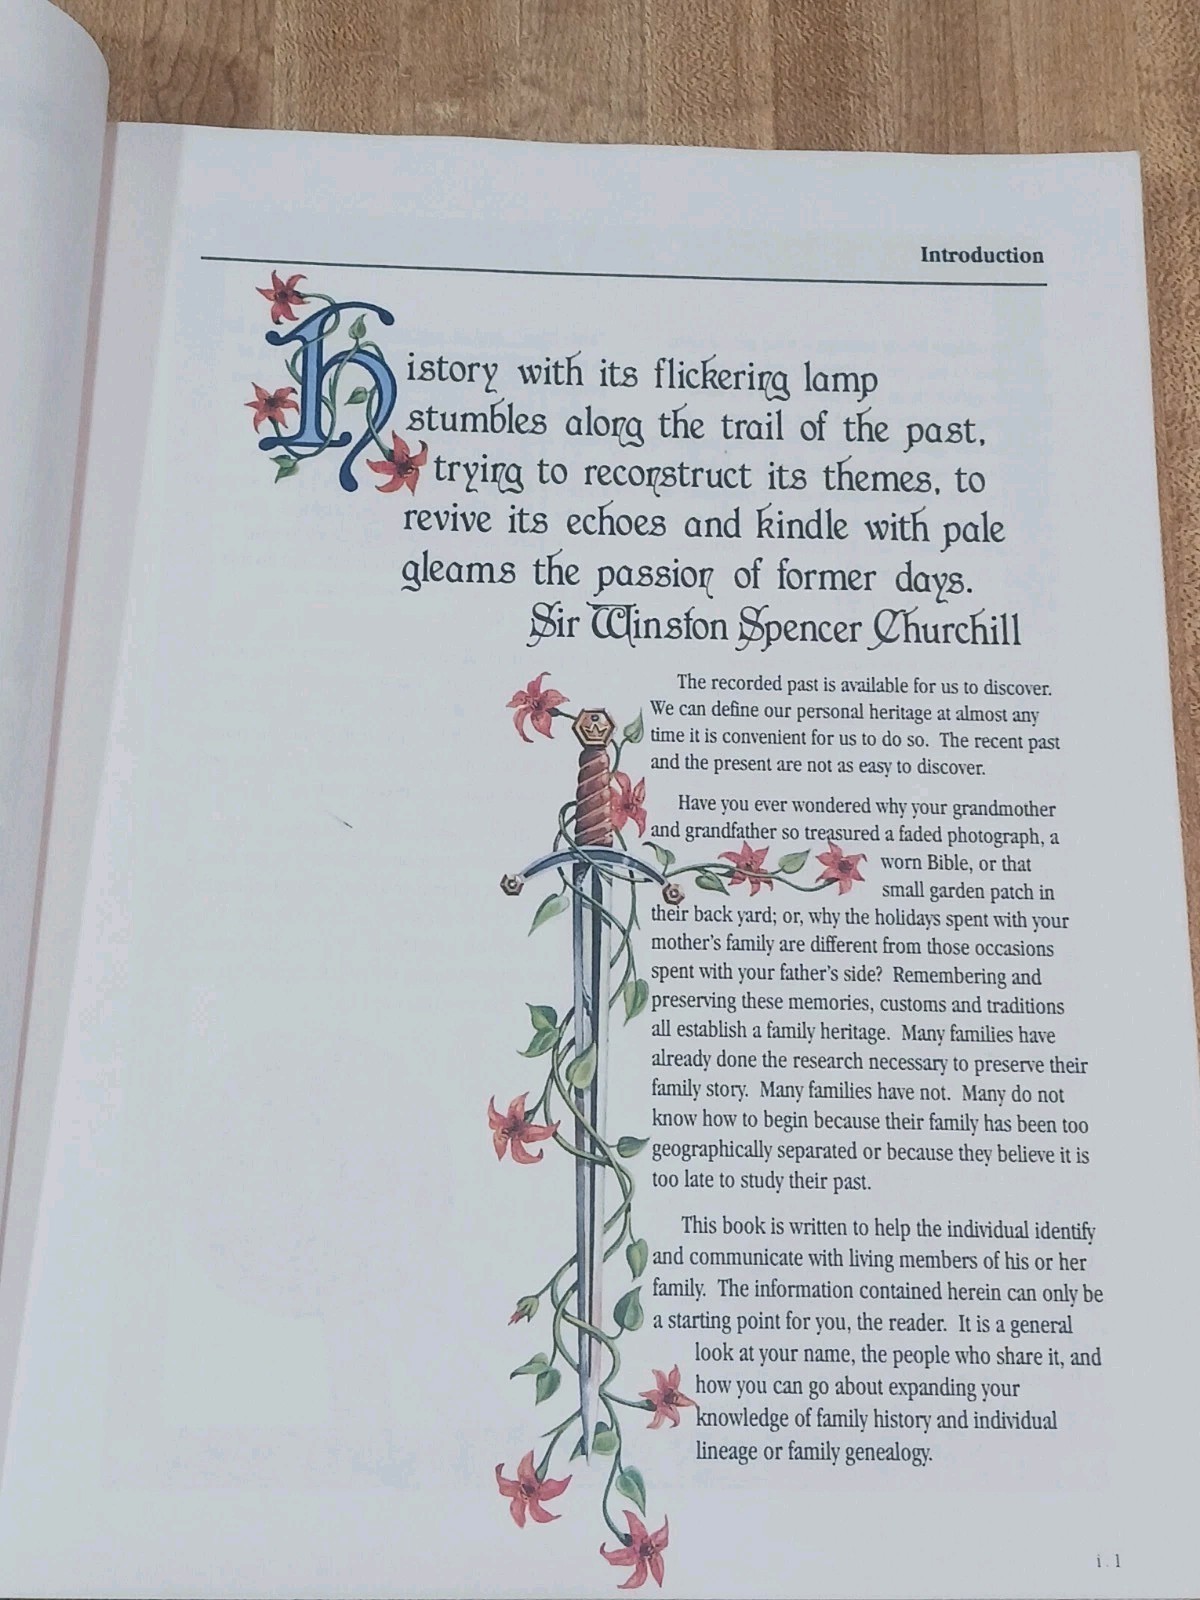 Introduction
History with its flickering lamp
stumbles along the trail of the past,
trying to reconstruct its themes, to
revive its echoes and kindle with pale
gleams the passion of former days.
Sir Winston Spencer Churchill
The recorded past is available for us to discover.
We can define our personal heritage at almost any
time it is convenient for us to do so. The recent past
and the present are not as easy to discover.
Have you ever wondered why your grandmother
and grandfather so treasured a faded photograph, a
worn Bible, or that
small garden patch in
their back yard; or, why the holidays spent with your
mother's family are different from those occasions
spent with your father's side? Remembering and
preserving these memories, customs and traditions
all establish a family heritage. Many families have
already done the research necessary to preserve their
family story. Many families have not. Many do not
know how to begin because their family has been too
geographically separated or because they believe it is
too late to study their past.
This book is written to help the individual identify
and communicate with living members of his or her
family. The information contained herein can only be
a starting point for you, the reader. It is a general
look at your name, the people who share it, and
how you can go about expanding your
knowledge of family history and individual
lineage or family genealogy.
i . 1